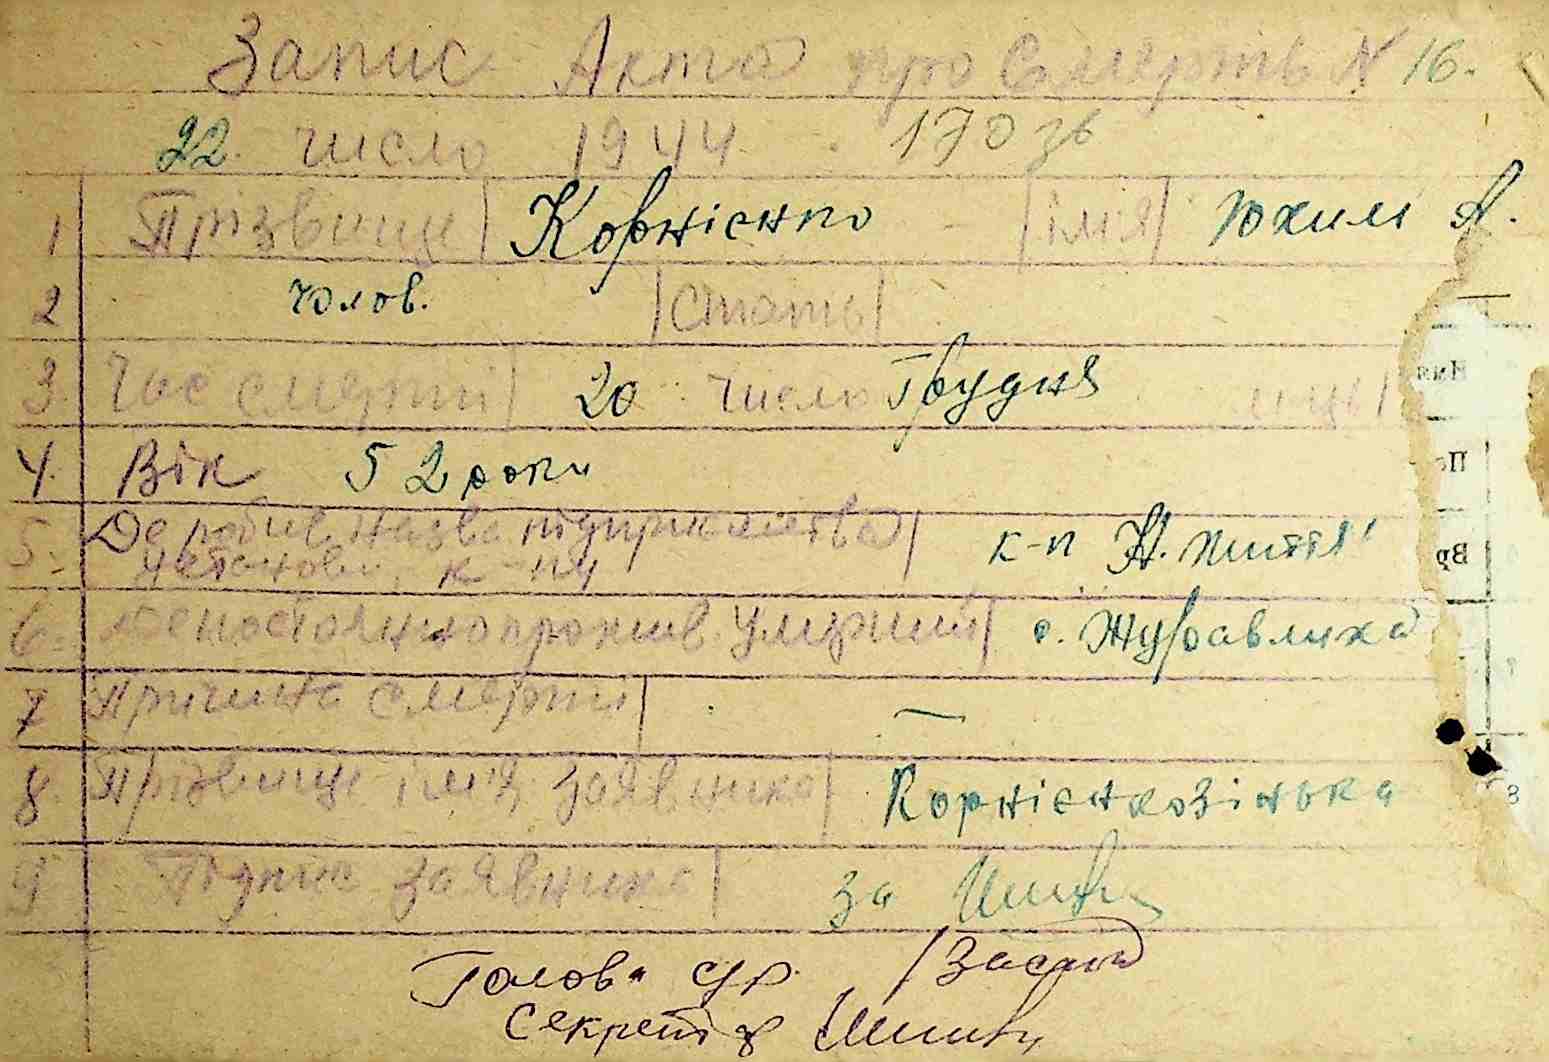 Запис Акта про Смерть № 16.
22. число 1944.
1 Прізвище Корнієнко - імя Юхим А.
2 чолов. Стать
3. Час смерті 20 число Грудня м-ця
4. Вік 52 роки
5. Де робив. назва підприємства
установи, к-пу к-п Н. життя
6. прожив. умерший с. Журавлиха
7 Причина смерті —
8. Прізвище імя, заявника Корнієнко Зінька
9 Підпис заявника за
Голова с/р
Секретар